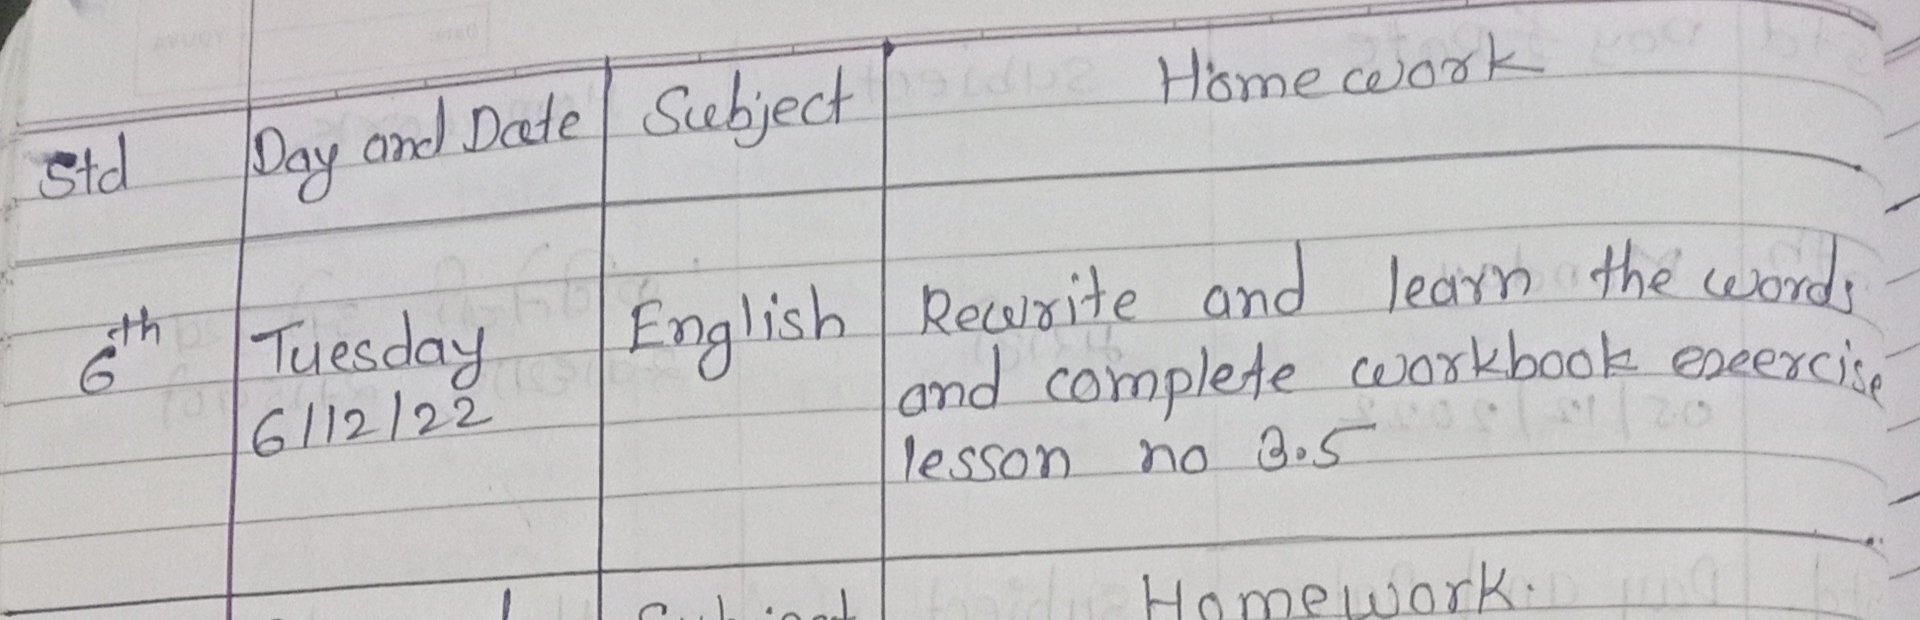 Std Day and Date Subject Homework
6th Tuesday English Rewrite and learn the words
6/12/22 and complete workbook exeercise
lesson no 3.5
Subject Homework.